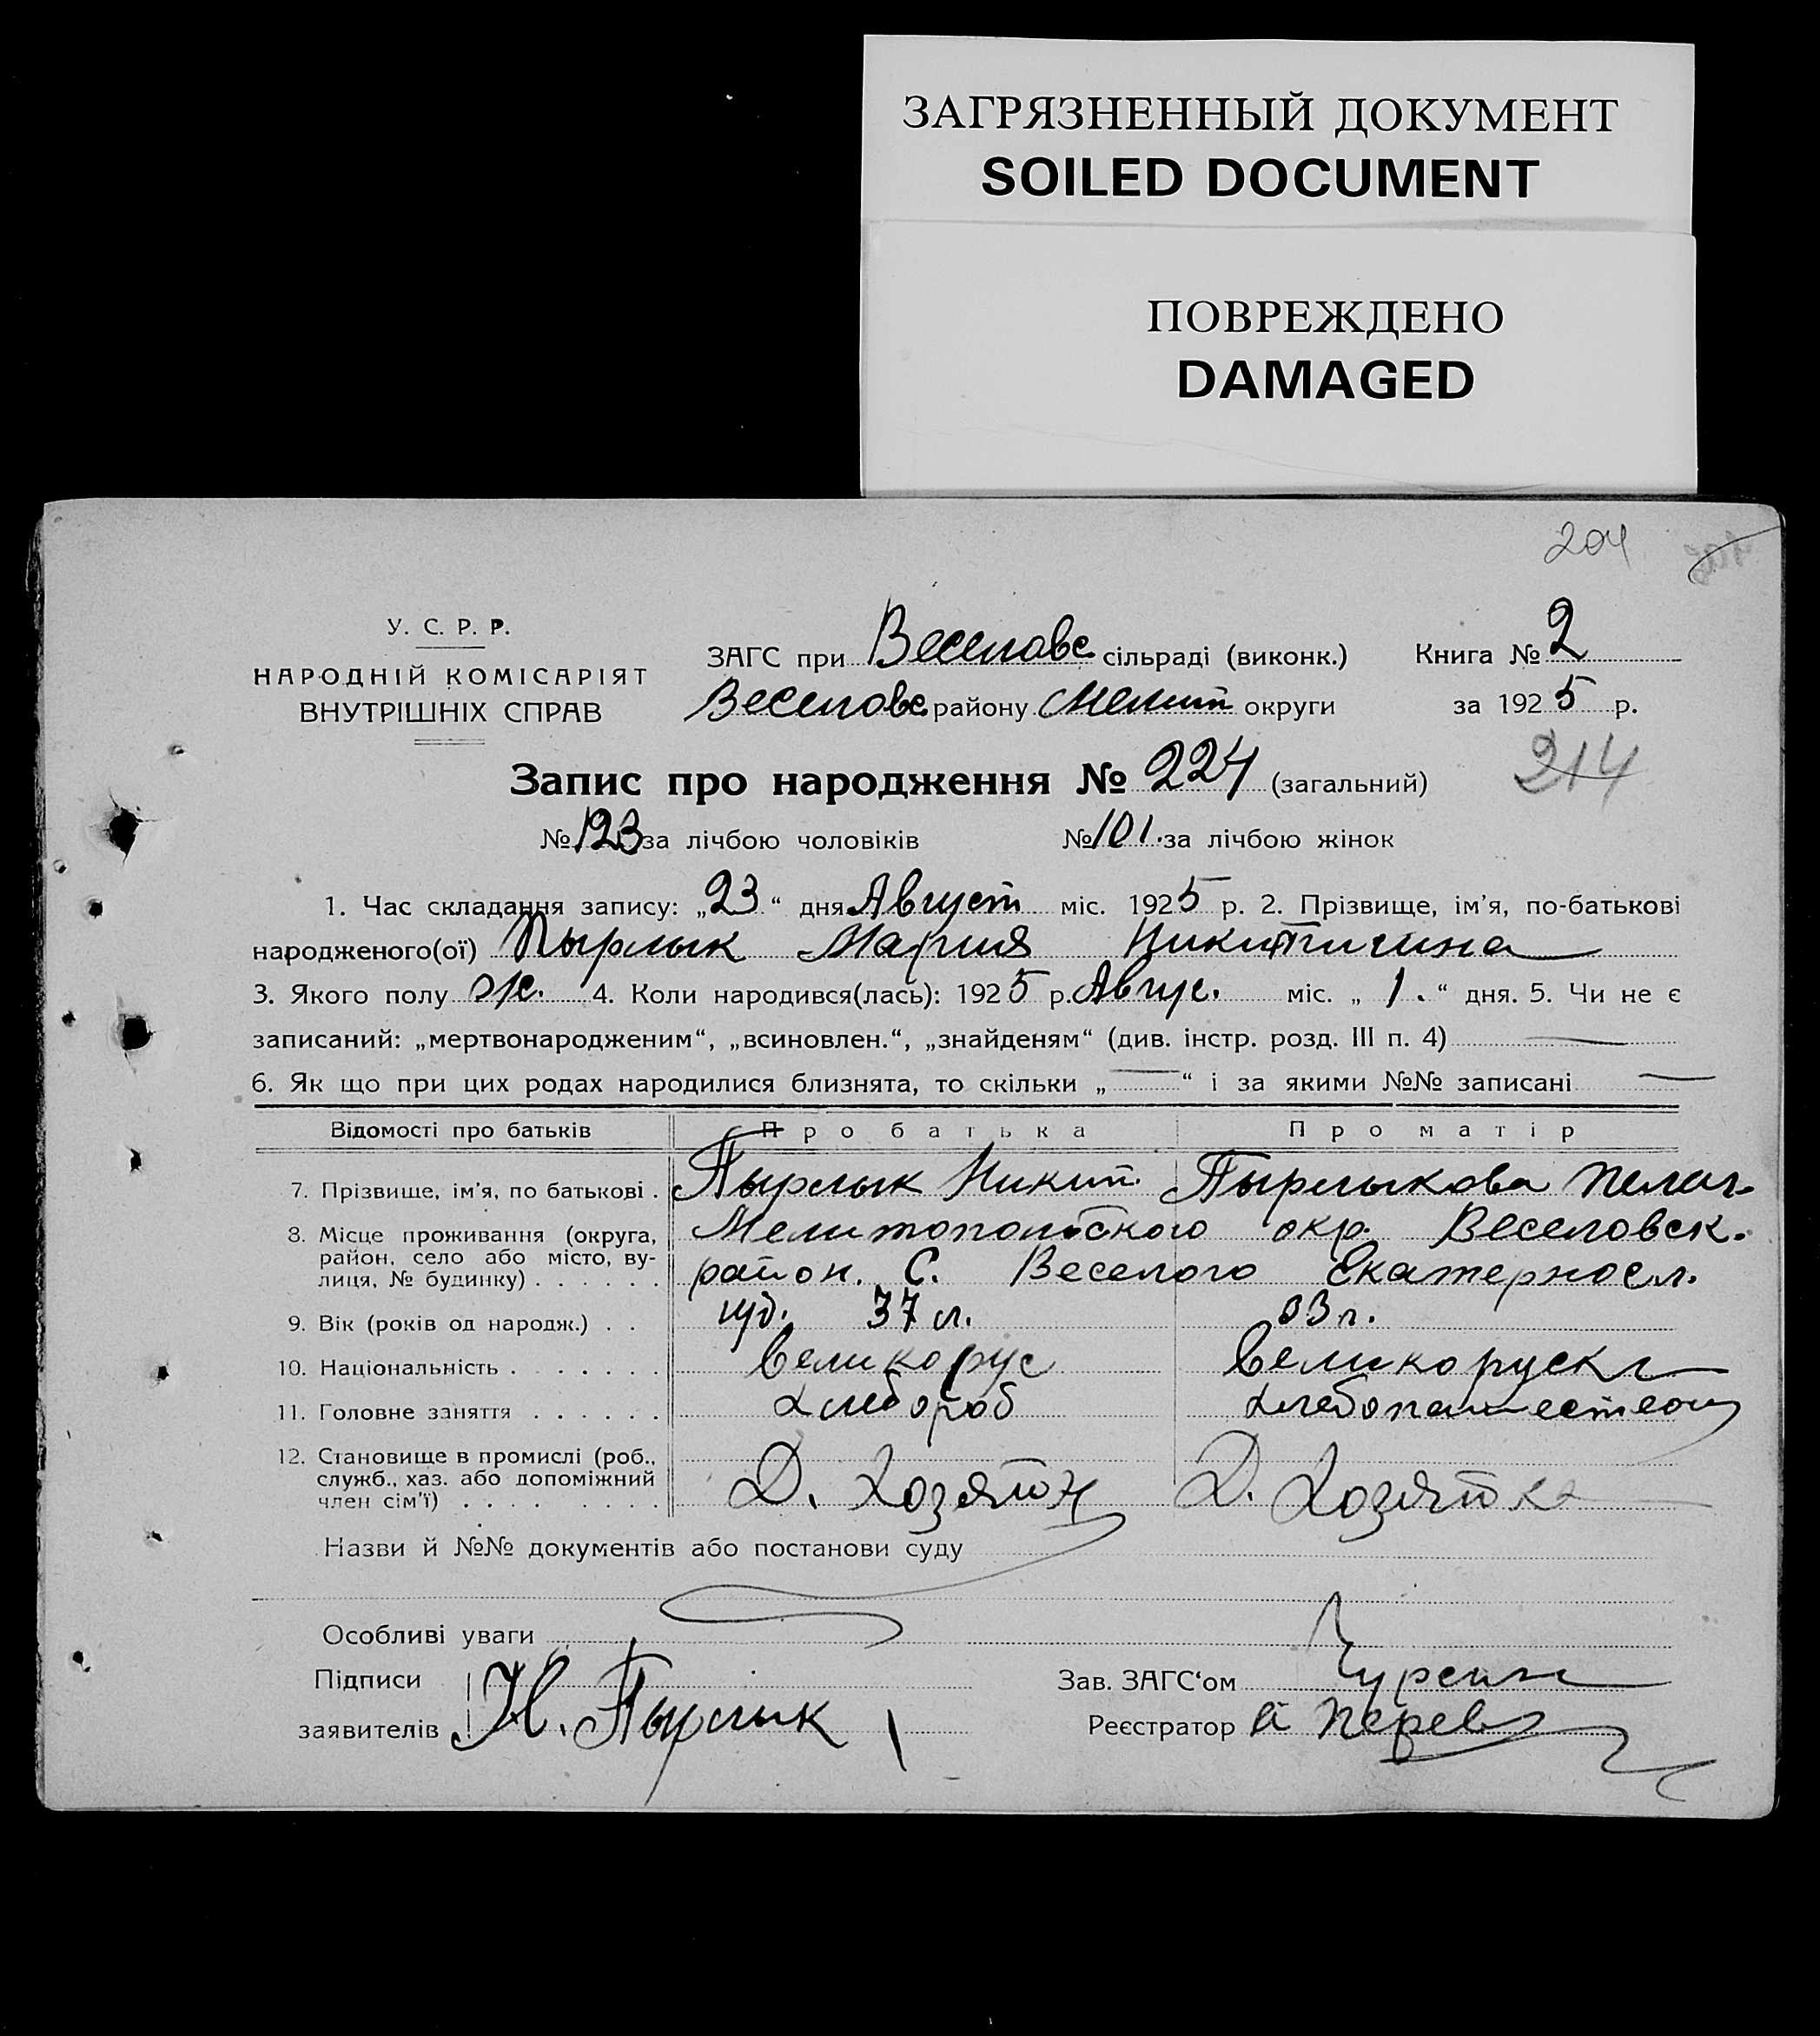 ЗАГРЯЗНЕННЫЙ ДОКУМЕНТ
SOILED DOCUMENT
ПОВРЕЖДЕНО
DAMAGED
204
У. С. Р. Р.
НАРОДНІЙ КОМІСАРІЯТ
ВНУТРІШНІХ СПРАВ
ЗАГС при Веселовс сільраді (виконк.)
Веселовс району Мелит округи
Книга № 2
за 1925 р.
214
Запис про народження № 224 (загальний)
№ 123 за лічбою чоловіків № 101. за лічбою жінок
1. Час складання запису: „23“ дня Август міс. 1925 р. 2. Прізвище, ім’я, по-батькові
народженого(ої) Пырлык Мария Никитична
3. Якого полу ж. 4. Коли народився(лась): 1925 р. Авгус. міс. „1.“ дня. 5. Чи не є
записаний: „мертвонародженим“, „всиновлен.“, „знайденям“ (див. інстр. розд. III п. 4) —
6. Як що при цих родах народилися близнята, то скільки „—“ і за якими №№ записані —
Відомості про батьків Про батька Про матір
7. Прізвище, ім’я, по батькові . Пырлык Никит. Пырлыкова Пелаг.
8. Місце проживання (округа, район, село або місто, вулиця, № будинку) . . . . . .
Мелитопольского окр. Веселовск.
район. С. Веселого Екатерносл.
губ.
9. Вік (років од народж.) . . 37 л. 33 г.
10. Національність . . . . . . . великорус великоруск
11. Головне заняття . . . . . . хлебороб
12. Становище в промислі (роб., служб., хаз. або допоміжний член сім’ї) . . . . . . . .
Д. Хозяин Д. Хозяйка
Назви й №№ документів або постанови суду
Особливі уваги
Підписи
заявителів Н. Пырлык
Зав. ЗАГС‘ом
Реєстратор